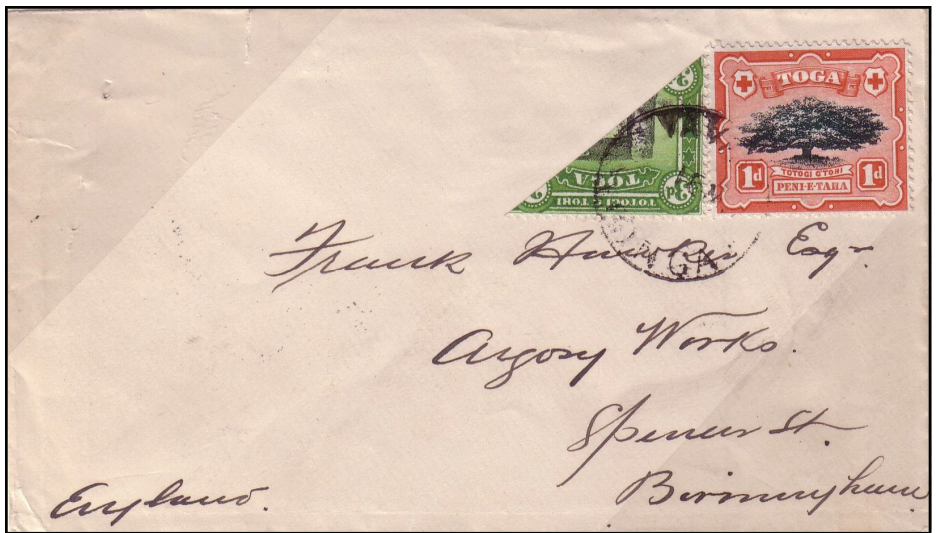 TOGA
TOTOGI O TOHI
1d 1d
PENI·E·TAHA
3d
TOGA
TOTOGI O TOHI
Frank Hawker Esqr
Argosy Works.
Spencer St.
Birmingham
England.